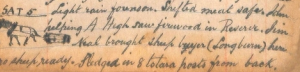 SAT 5 Light rain forenoon. Drifted meat safe. Jim
helping A. High saw firewood in Reserve. Jim
Neal brought sheep buyer (Longburn) here
no sheep ready. Sledged in 8 totara posts from back.